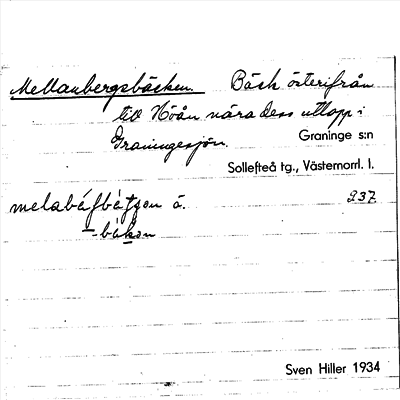 Mellanbergsbäcken. Bäck österifrån
till Höån nära dess utlopp i
Graningesjön. Graninge s:n
Sollefteå tg., Västernorrl. l.
237
Sven Hiller 1934